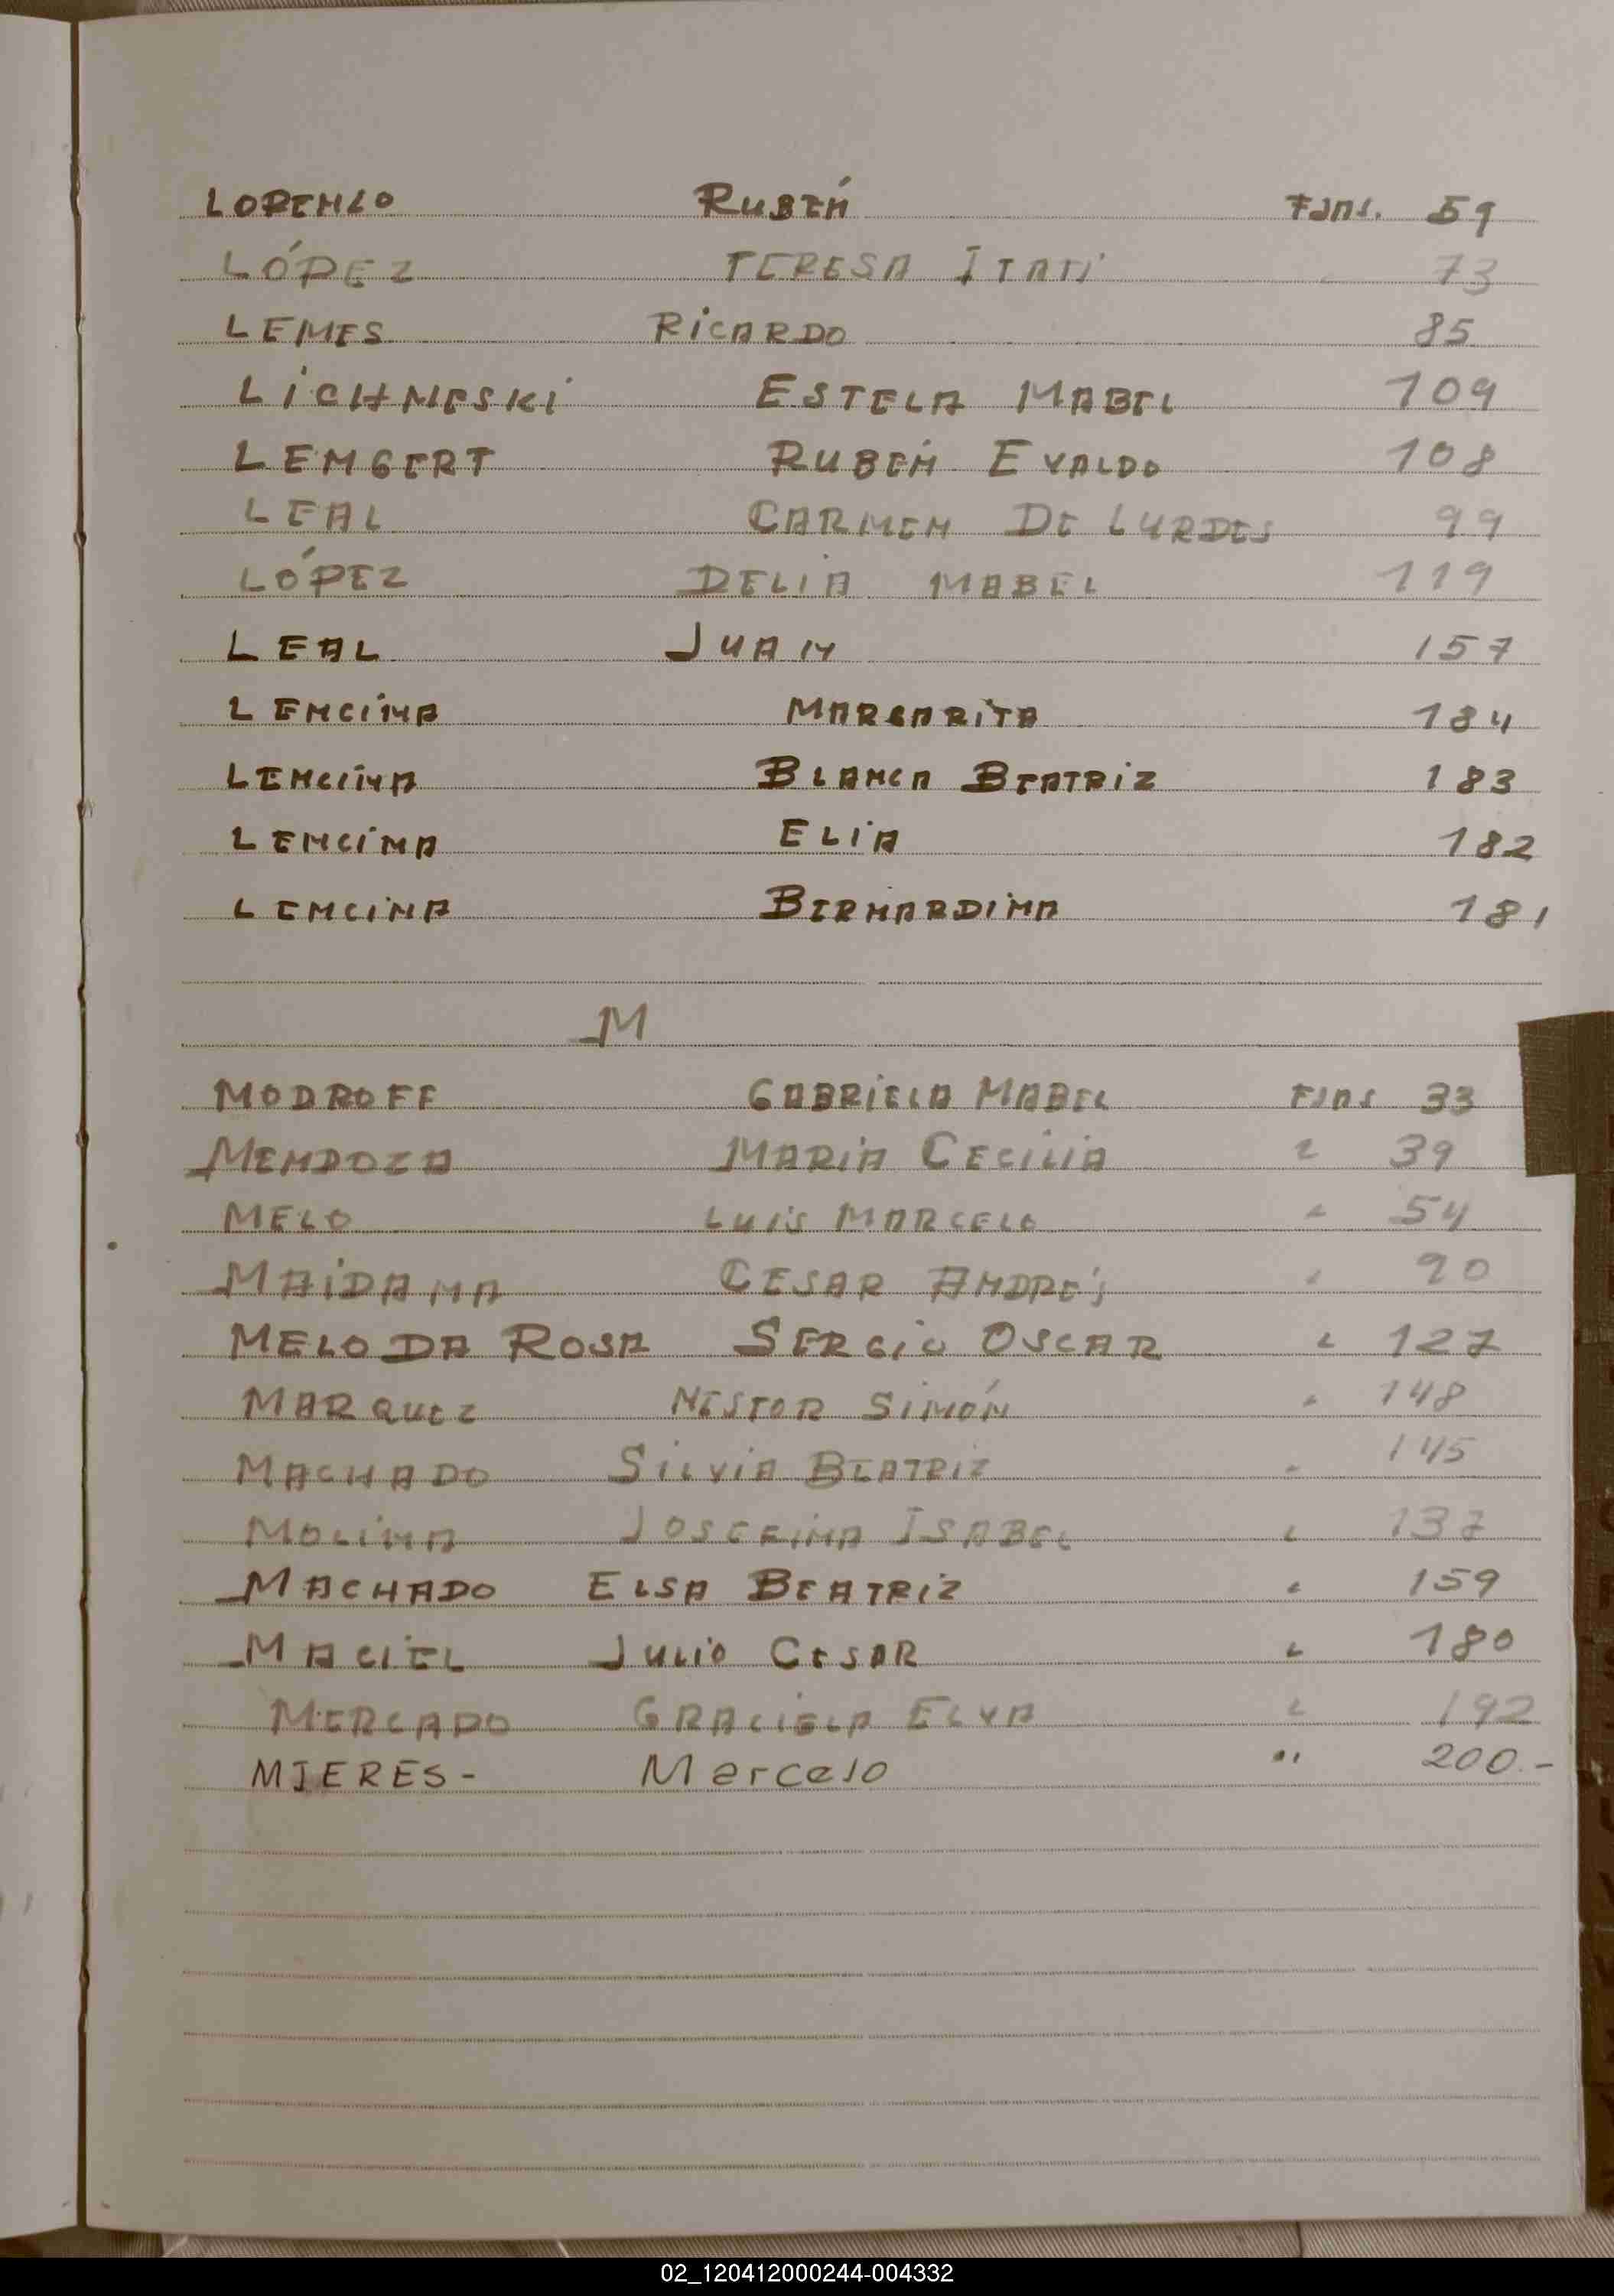 LORENZO RUBÉN Fjas. 59
LÓPEZ TERESA ITATÍ " 73
LEMES RICARDO 85
LICHNESKI ESTELA MABEL 109
LEMGERT RUBÉN EVALDO 108
LEAL CARMEN DE LURDES 99
LÓPEZ DELIA MABEL 119
LEAL JUAN 157
LENCINA MARGARITA 184
LENCINA BLANCA BEATRIZ 183
LENCINA ELIA 182
LENCINA BERNARDINA 181
M
MODROFF GABRIELA MABEL Fjas 33
MENDOZA MARIA CECILIA " 39
MELO LUIS MARCELO " 54
MAIDANA CESAR ANDRÉS " 90
MELO DA ROSA SERGIO OSCAR " 127
MARQUEZ NESTOR SIMÓN " 148
MACHADO SILVIA BEATRIZ " 145
MOLINA JOSEFINA ISABEL " 137
MACHADO ELSA BEATRIZ " 159
MACIEL JULIO CESAR " 180
MERCADO GRACIELA ELVA " 192
MIERES - Marcelo " 200.-
02_120412000244-004332